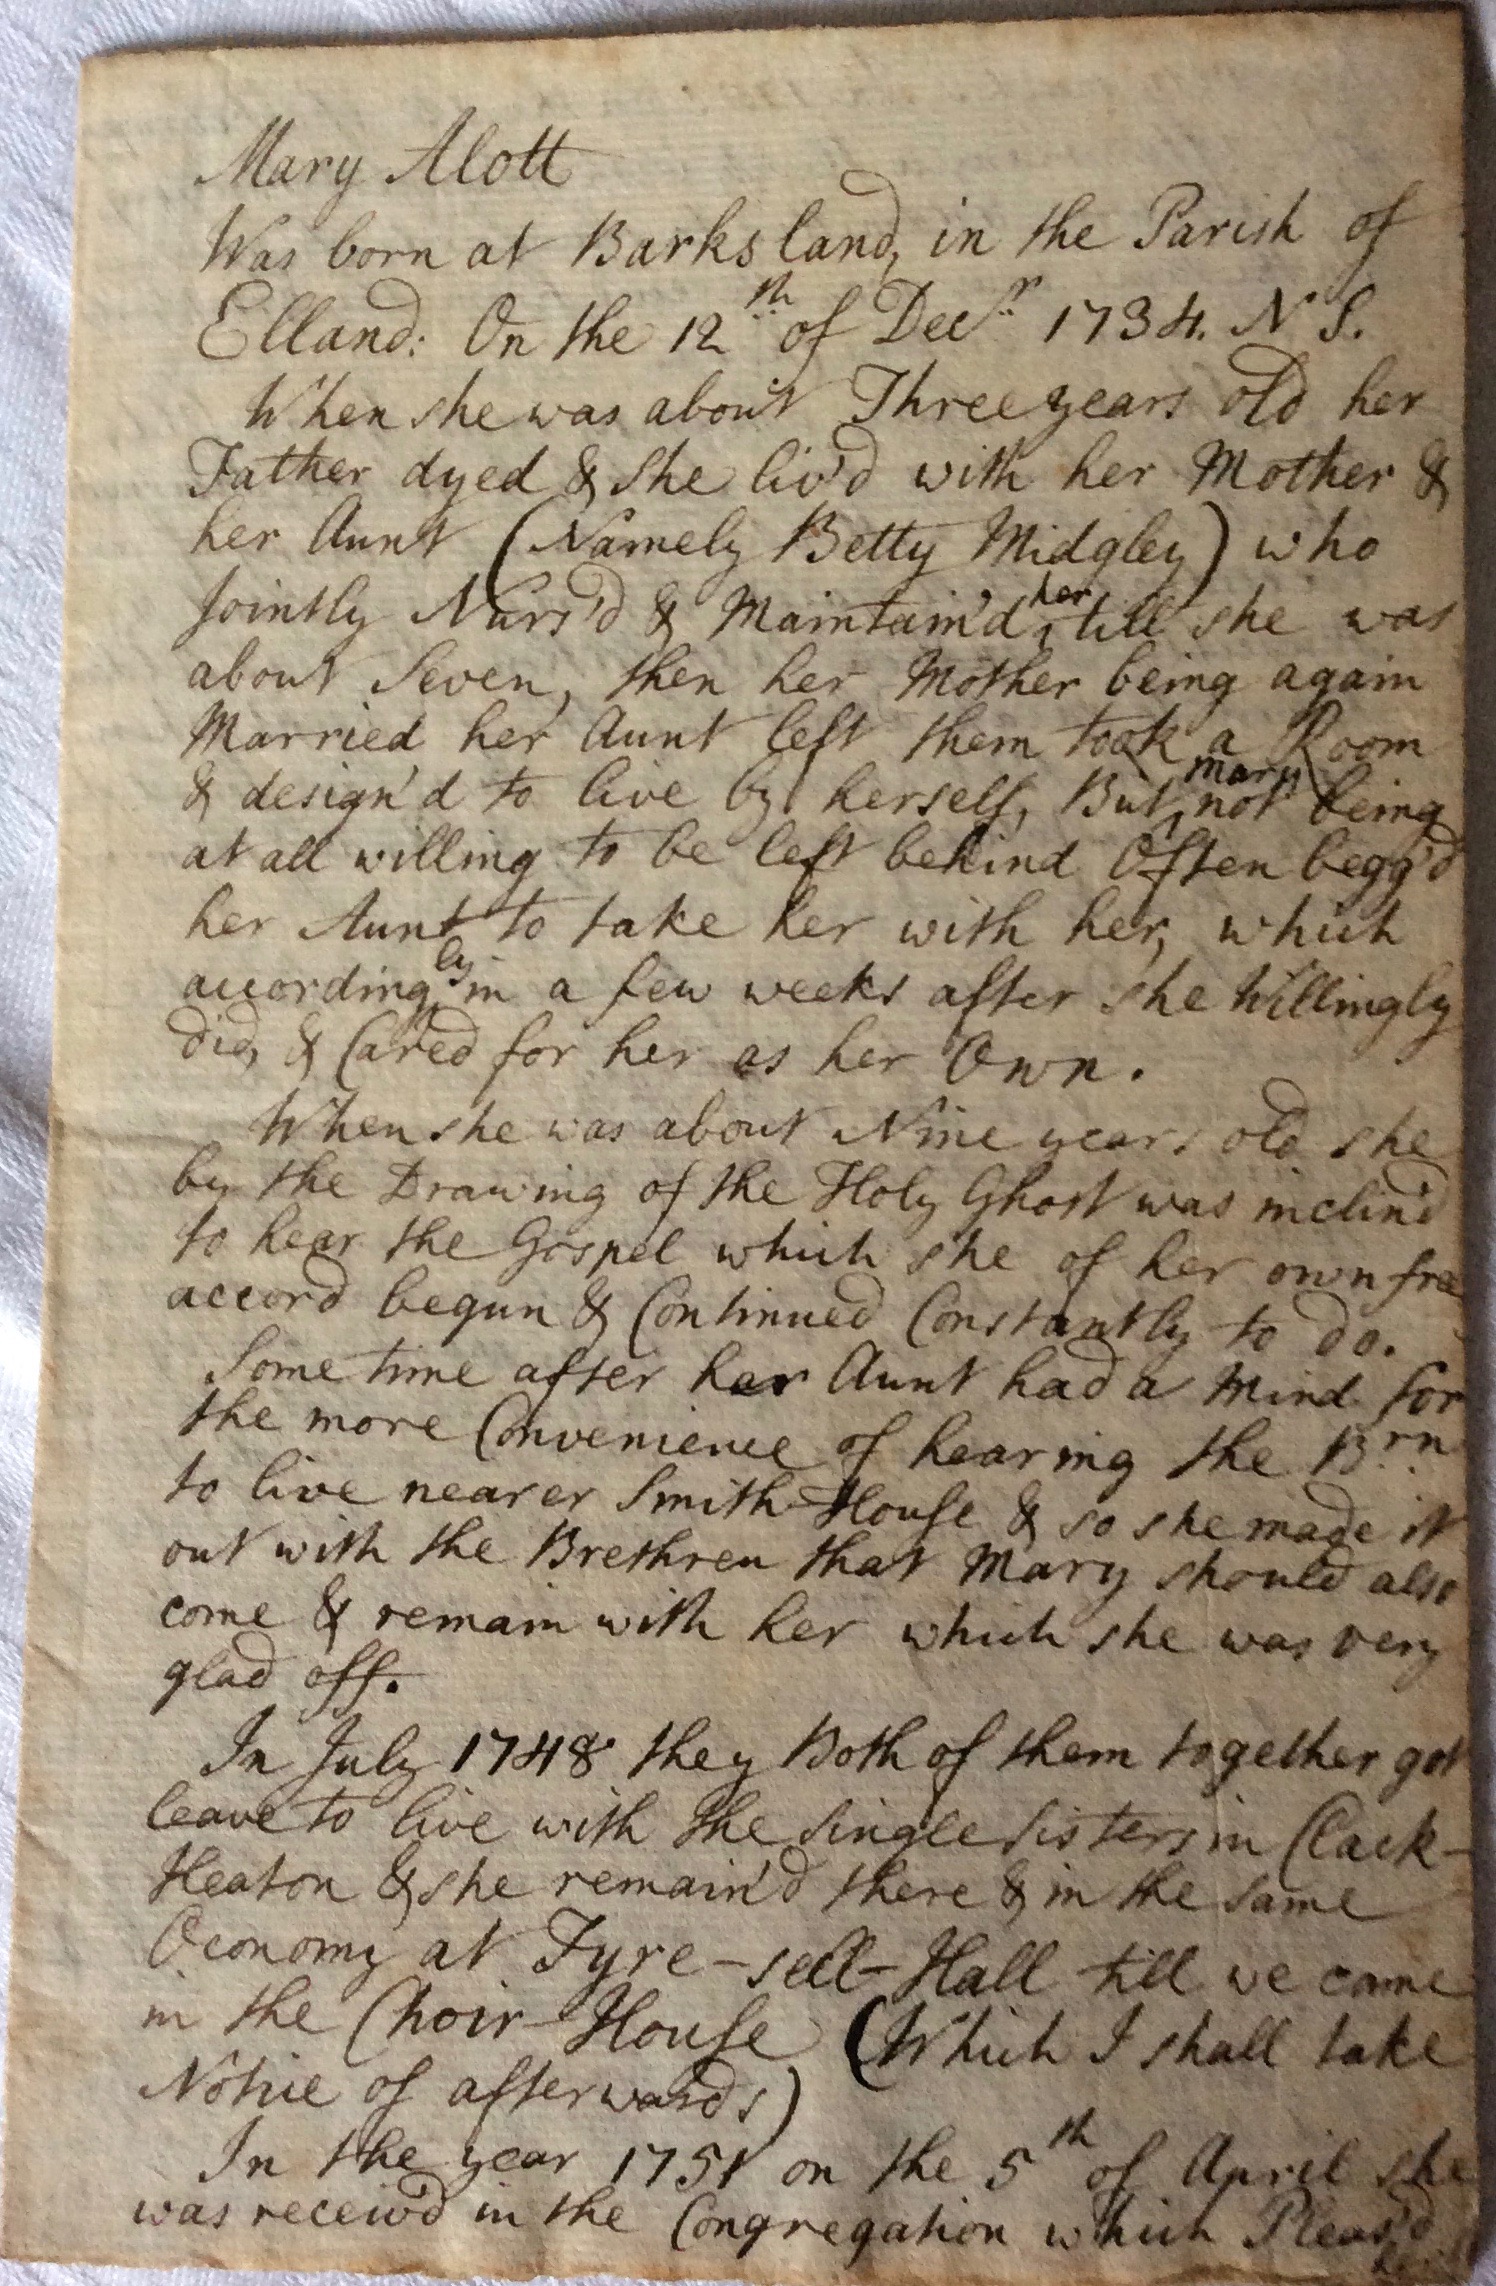 Mary Alott
Was born at Barksland, in the Parish of
Elland: On the 12th of Decr 1734. N S.
When she was about Three years old her
Father dyed & she liv'd with her Mother &
her Aunt (Namely Betty Midgley) who
Jointly Nurs'd & Maintain'd her till she was
about Seven, then her Mother being again
Married, her Aunt left them took a Room
& design'd to live by herself, But mary not being
at all willing to be left behind Often begg'd
her Aunt to take her with her, which
accordingly in a few weeks after she Willingly
did, & Cared for her as her Own.
When she was about Nine years old she
by the Drawing of the Holy Ghost was inclin'd
to hear the Gospel which she of her own free
accord begun & Continued Constantly to do.
Some time after her Aunt had a Mind for
the more Convenience of hearing the Brn
to live nearer Smith-House & so she made it
out with the Brethren that Mary should also
come & remain with her which she was very
glad off.
In July 1748 they Both of them together got
leave to live with the Single Sisters in Clack-
Heaton & she remain'd there & in the same
Oconomy at Fyre-sell-Hall till we came
in the Choir-House (Which I shall take
Notice of afterwards)
In the year 1751 on the 5th of April she
was receiv'd in the Congregation which Pleas'd